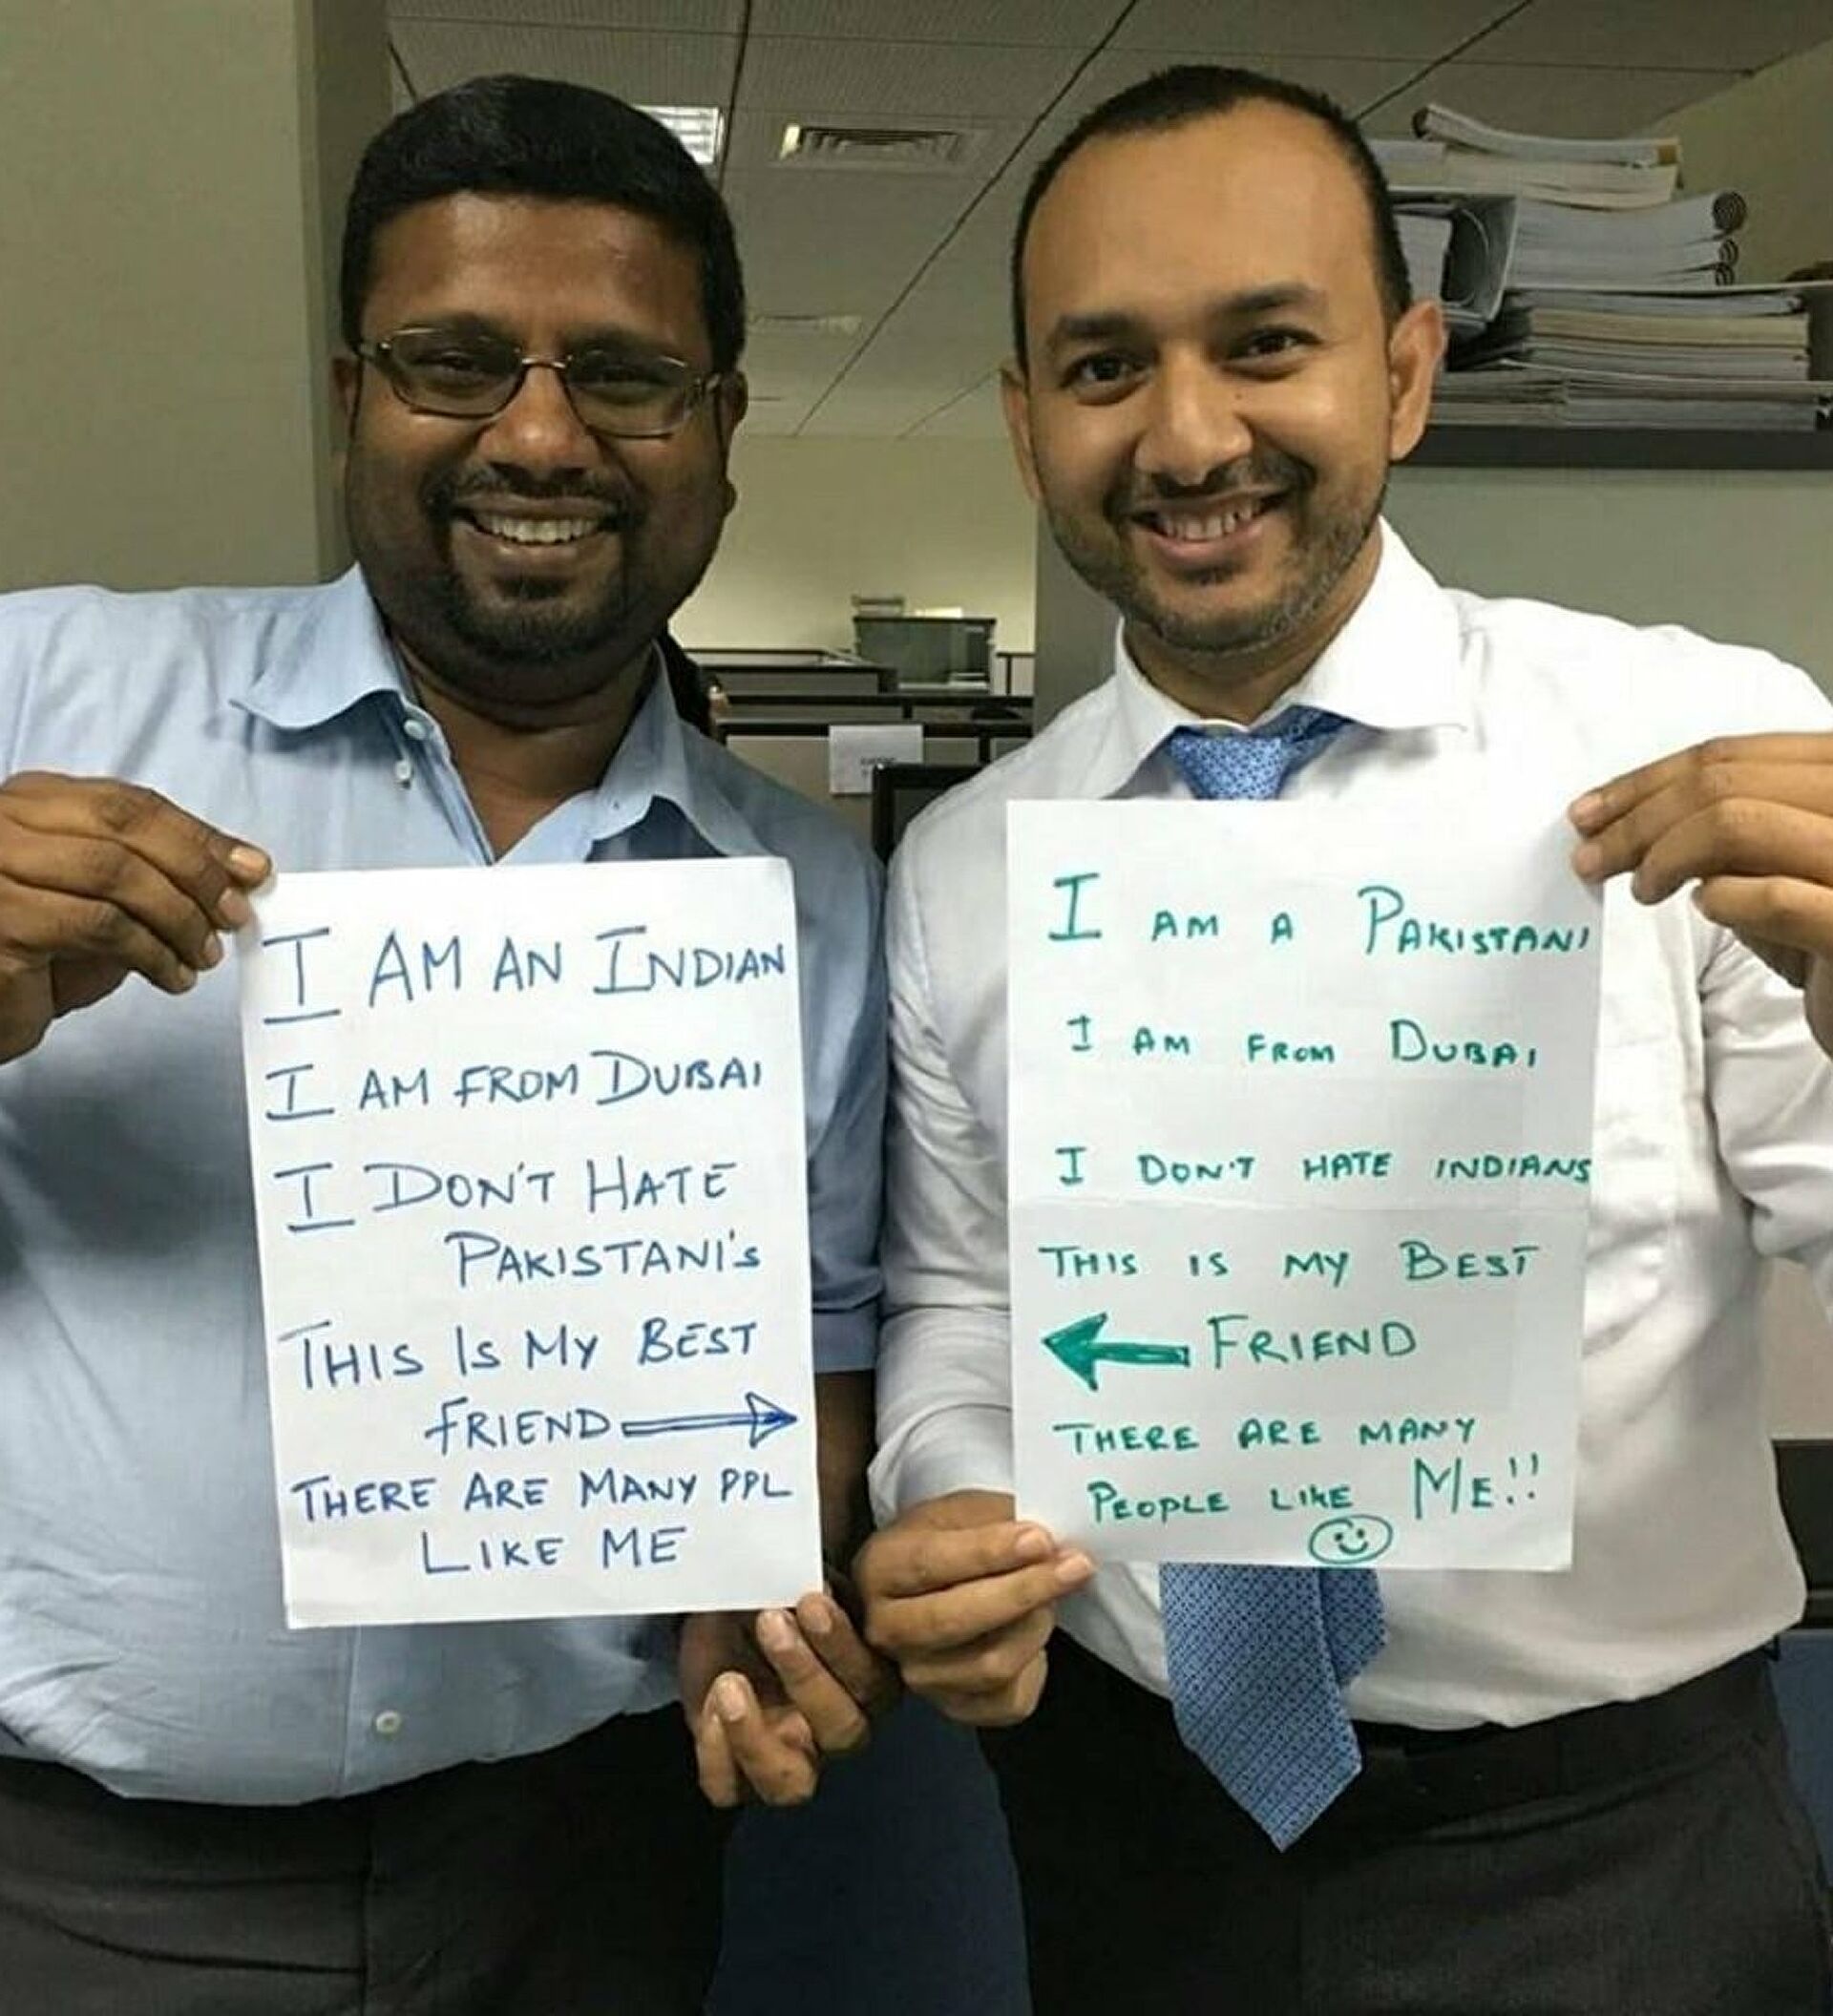 I AM AN INDIAN
I AM FROM DUBAI
I DON'T HATE
PAKISTANI'S
THIS IS MY BEST
FRIEND
THERE ARE MANY PPL
LIKE ME
I AM A PAKISTANI
I AM FROM DUBAI
I DON'T HATE INDIANS
THIS IS MY BEST
FRIEND
THERE ARE MANY
PEOPLE LIKE ME!!